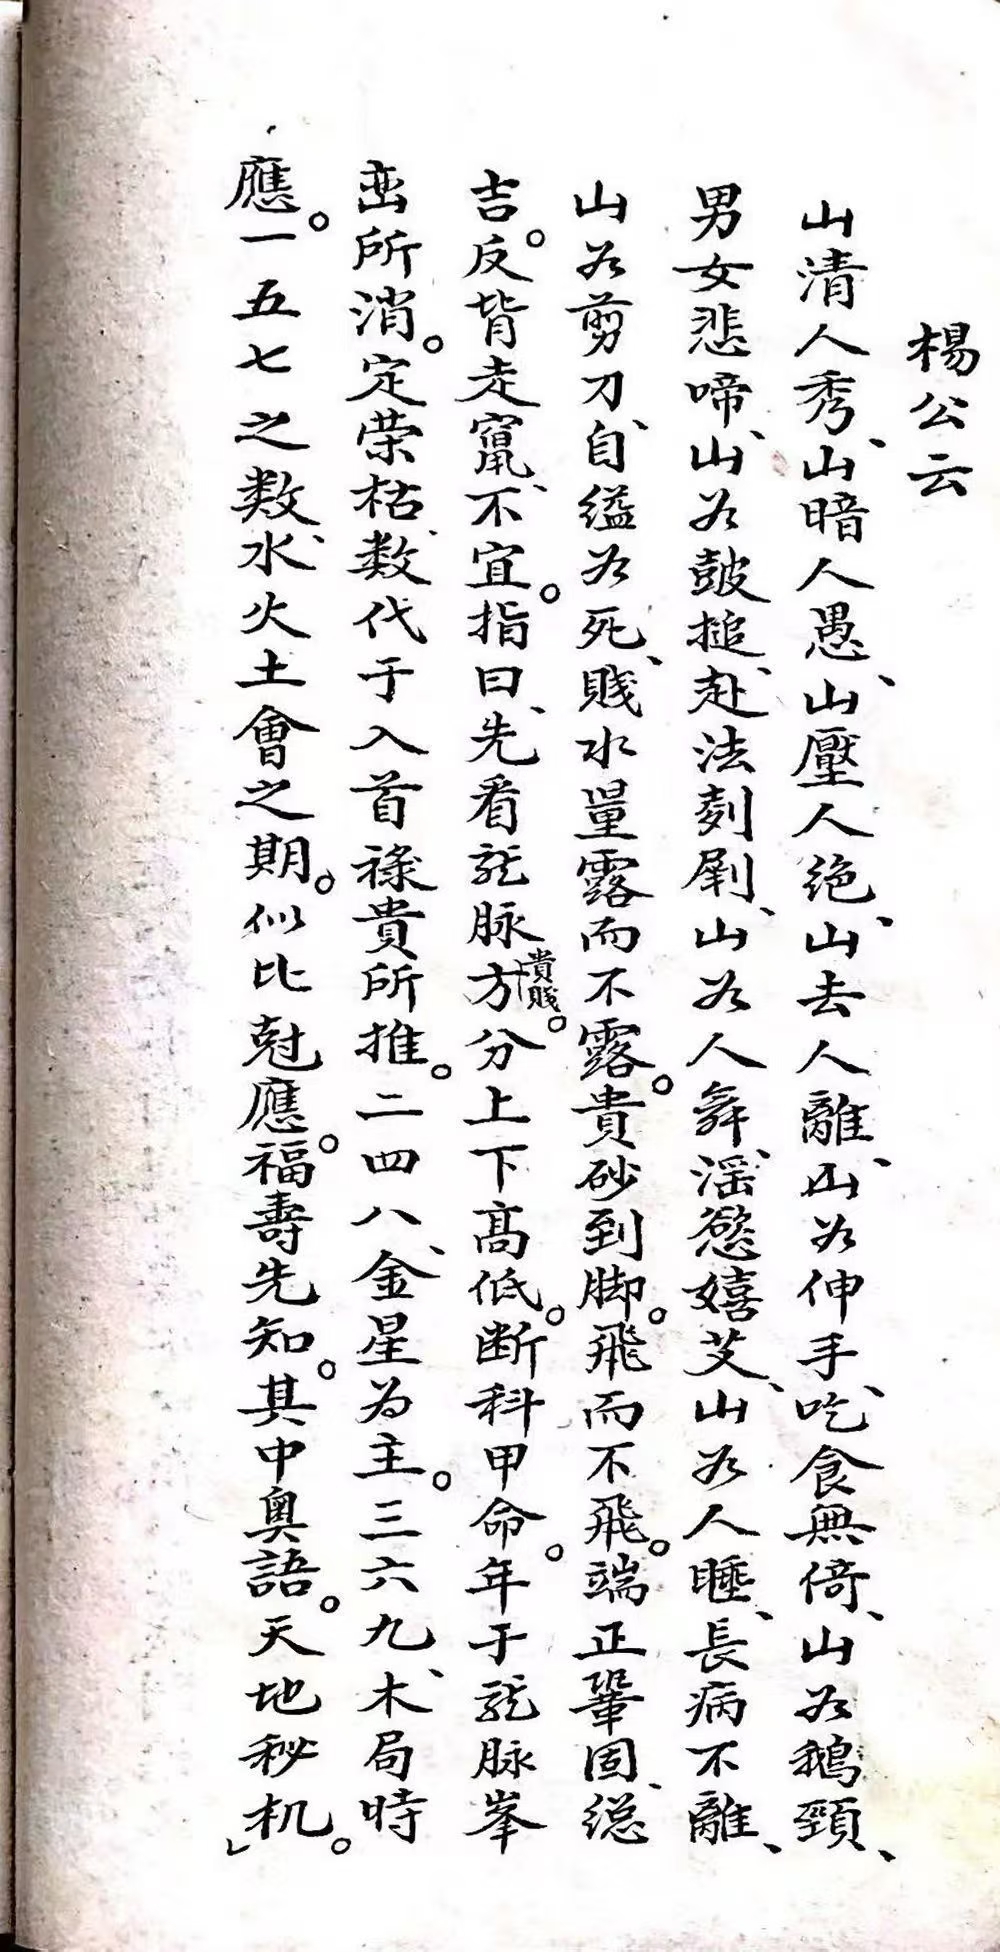 楊公云
山清人秀、山暗人愚、山壓人絶、山去人離、山为伸手、吃食無倚、山为鵝頸、
男女悲啼、山为皷搥、赴法刾劇、山为人舞、滛慾嬉、山为人睡、長病不離、
山为剪刀、自縊为死、賤水量露而不露。貴砂到脚。飛而不飛。端正鞏固、総
吉。反背走竄、不宜。指曰、先看龍脉方分貴賤。上下高低。断科甲命。年于龍脉峯
巒所消。定荣枯、数代于入首祿貴所推。二四八、金星为主。三六九、木局時
應。一五七之数、水火土會之期。似比尅應。福壽先知。其中奥語。天地秘机。